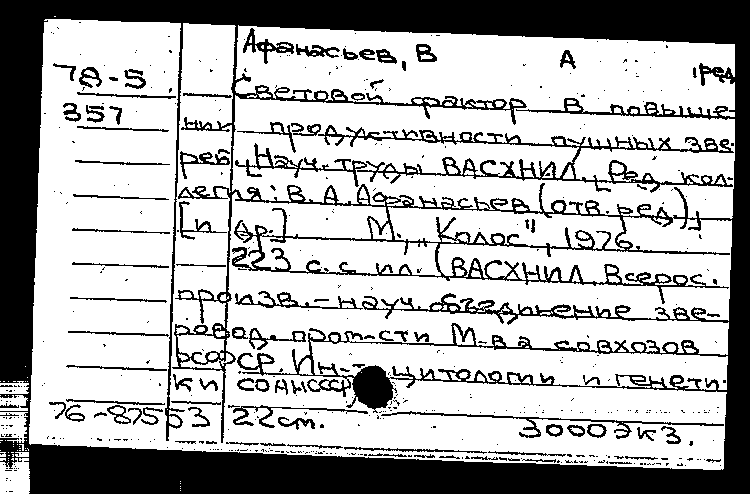 Афанасьев, В А ред
78-5 Световой фактор в повыше-
357 нии продуктивности пушных зве-
рей. [Науч. труды ВАСХНИЛ. [Ред. кол-
легия: В. А. Афанасьев (отв. ред.)]
[и др.]. М., "Колос", 1976.
223 с. с ил. (ВАСХНИЛ. Всерос.
произв.-науч. объединение зве-
ровод. пром-сти М-ва совхозов
РСФСР. Ин-т цитологии и генети-
ки СОАНСССР)
76-87553 22 см. 3000 экз.